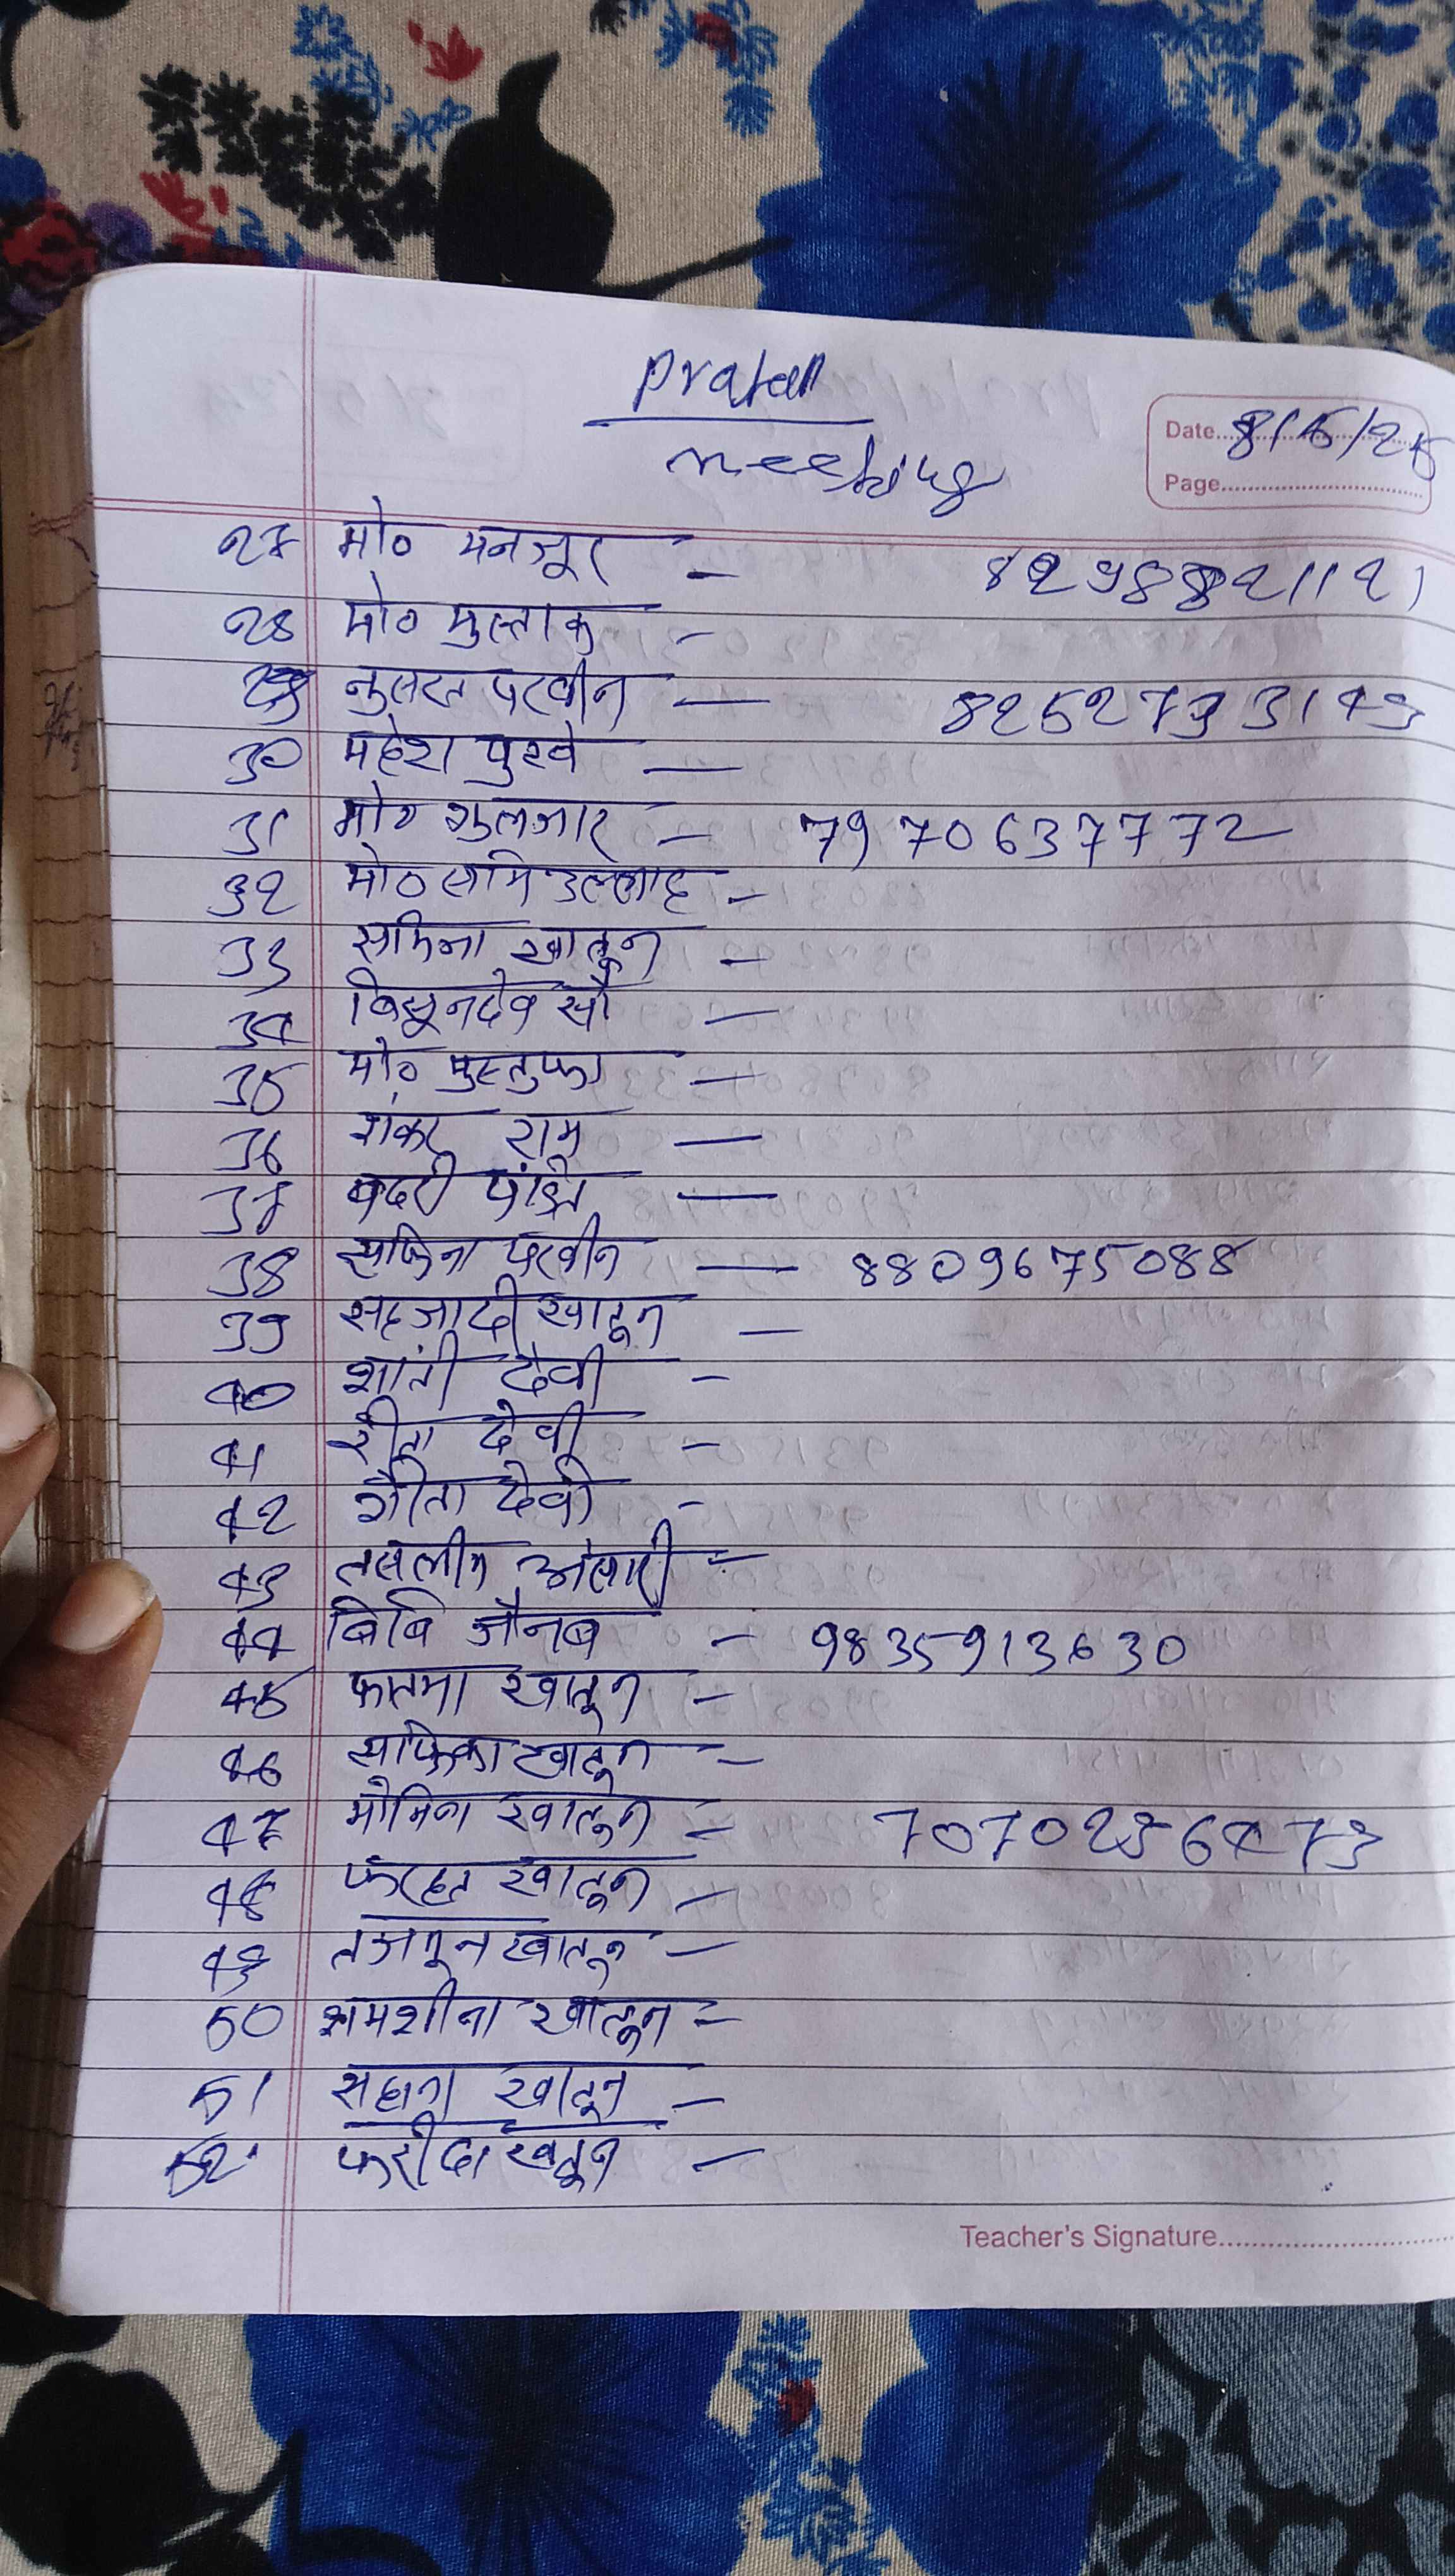 Pratap
meeting
Date 8/5/25
Page
27 मो० मनजूर - 8298821121
28 मो० मुस्ताक -
29 नुसरत परवीन - 8252733149
30 महेश पुरवे -
31 मो० गुलजार - 7970637772
32 मो० समिउल्लाह -
33 सकिना खातून -
34 बिसूनदेव सी -
35 मो० मुस्तुफा -
36 शंकर राम -
37 बदरी पंडित -
38 सफिना परवीन - 8809675088
39 सहजादी खातून -
40 शांती देवी -
41 रीता देवी -
42 गीता देवी -
43 तसलीम अंसारी -
44 बिबि जैनब - 9835913630
45 फातमा खातून -
46 साफिका खातून -
47 मोमिना खातून -
48 फरहत खातून -
49 तजमून खातून -
50 शमशीना खातून -
51 सहाना खातून -
52 फरीदा खतून -
Teacher's Signature